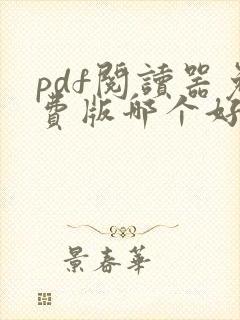 pdf閱讀器免
費版哪个好
景春華